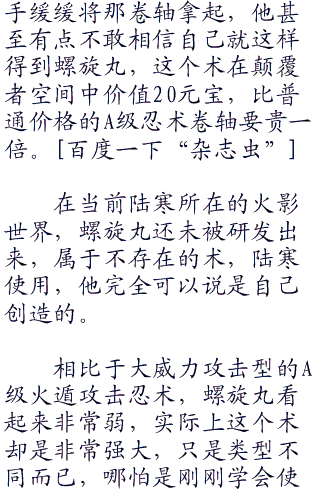 手缓缓将那卷轴拿起，他甚
至有点不敢相信自己就这样
得到螺旋丸，这个术在颠覆
者空间中价值20元宝，比普
通价格的A级忍术卷轴要贵一
倍。[百度一下“杂志虫”]
在当前陆寒所在的火影
世界，螺旋丸还未被研发出
来，属于不存在的术，陆寒
使用，他完全可以说是自己
创造的。
相比于大威力攻击型的A
级火遁攻击忍术，螺旋丸看
起来非常弱，实际上这个术
却是非常强大，只是类型不
同而已，哪怕是刚刚学会使